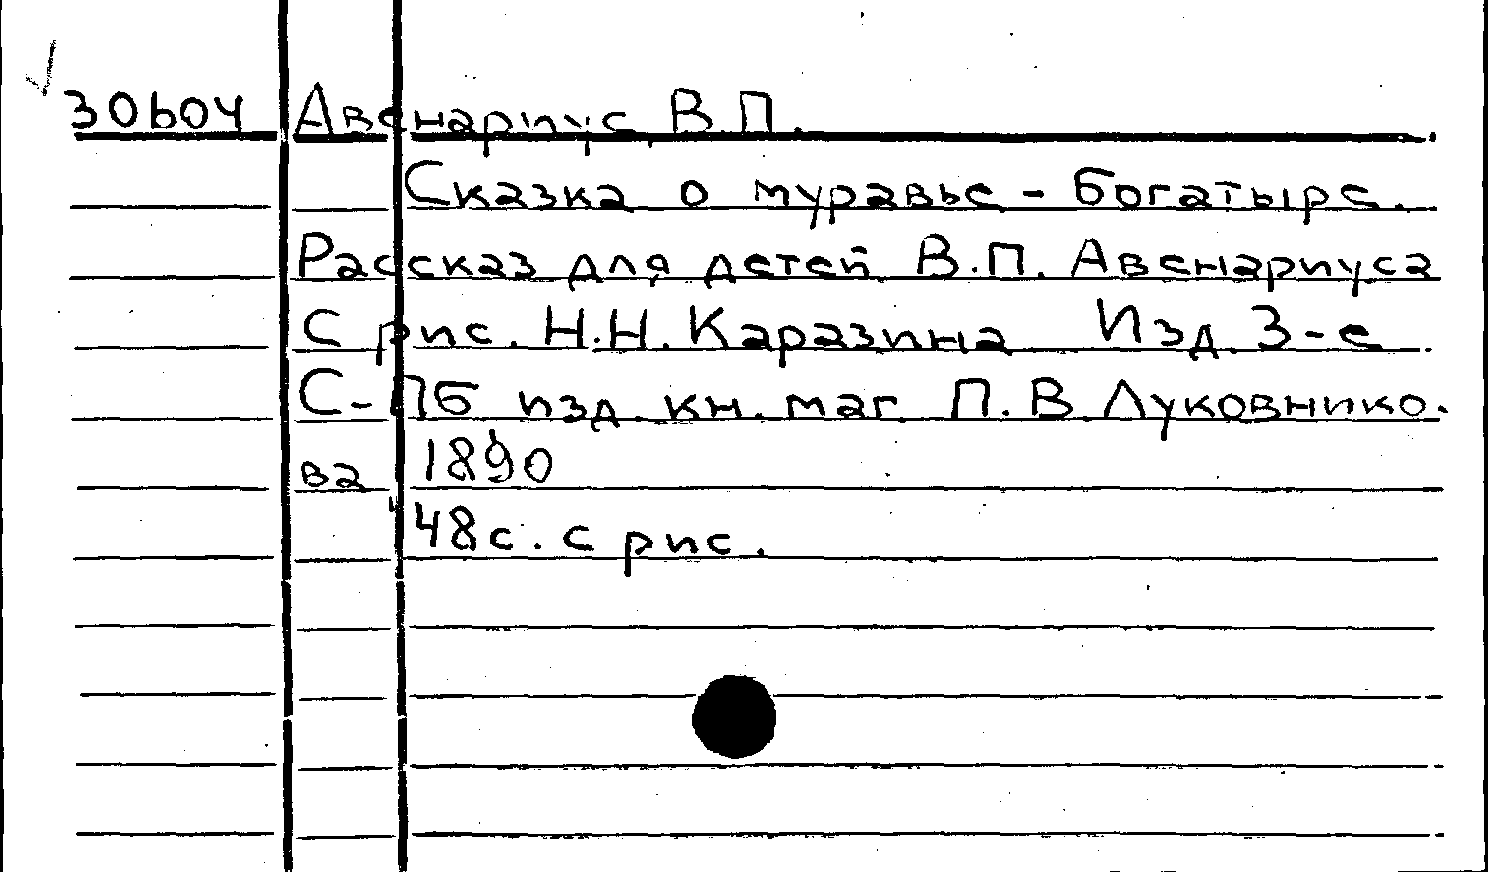 30604 Авенариус В.П.
Сказка о муравье - богатыре.
Рассказ для детей В.П. Авенариуса
С рис. Н.Н. Каразина Изд. 3-е.
С-Пб изд. кн. маг. П.В. Луковнико-
ва 1890
48с. с рис.